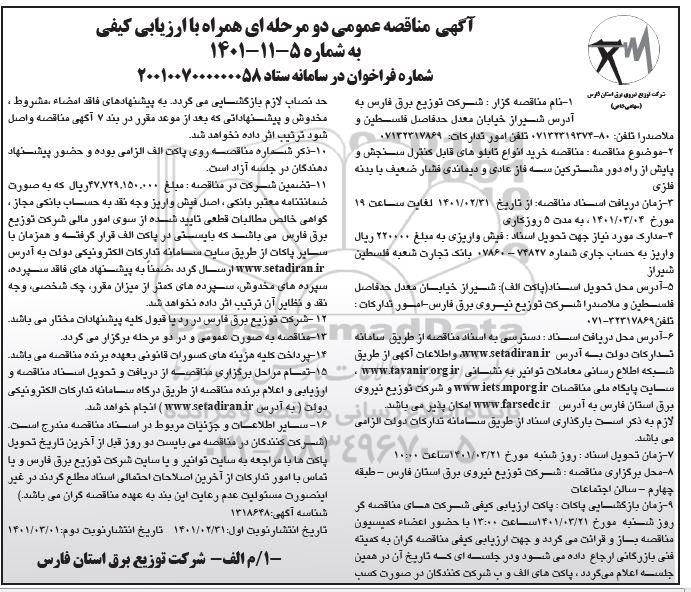 آگهی مناقصه عمومی دو مرحله ای همراه با ارزیابی کیفی
به شماره ۵-۱۱-۱۴۰۱
شماره فراخوان در سامانه ستاد ۲۰۰۱۰۰۷۰۰۰۰۰۰۰۵۸
شرکت توزیع نیروی برق استان فارس
(سهامی خاص)
۱-نام مناقصه گزار : شرکت توزیع برق فارس به
آدرس شیراز خیابان معدل حدفاصل فلسطین و
ملاصدرا تلفن: ۸۰-۰۷۱۳۲۳۱۹۳۷۴ تلفن امور تدارکات: ۰۷۱۳۲۳۱۷۸۶۹
۲-موضوع مناقصه : مناقصه خرید انواع تابلو های قابل کنترل سنجش و
پایش از راه دور مشترکین سه فاز عادی و دیماندی فشار ضعیف با بدنه
فلزی
۳-زمان دریافت اسناد مناقصه: از تاریخ ۱۴۰۱/۰۲/۳۱ لغایت ساعت ۱۹
مورخ ۱۴۰۱/۰۳/۰۴ ، به مدت ۵ روزکاری
۴-مدارک مورد نیاز جهت تحویل اسناد : فیش واریزی به مبلغ ۲۲۰۰۰۰ ریال
واریز به حساب جاری شماره ۷۴۸۲۷-۰۷۸۶۰ بانک تجارت شعبه فلسطین
شیراز
۵-آدرس محل تحویل اسناد(پاکت الف): شیراز خیابان معدل حدفاصل
فلسطین و ملاصدرا شرکت توزیع نیروی برق فارس-امور تدارکات :
تلفن۳۲۳۱۷۸۶۹-۰۷۱
۶-آدرس محل دریافت اسناد : دسترسی به اسناد مناقصه از طریق سامانه
تدارکات دولت به آدرس www.setadiran.ir، و اطلاعات آگهی از طریق
شبکه اطلاع رسانی معاملات توانیر به نشانی www.tavanir.org.ir ،
سایت پایگاه ملی مناقصات www.iets.mporg.ir و شرکت توزیع نیروی
برق استان فارس به آدرس www.farsedc.ir امکان پذیر می باشد.
لازم به ذکر است بارگذاری اسناد از طریق سامانه تدارکات دولت الزامی
می باشد.
۷-زمان تحویل اسناد : روز شنبه مورخ ۱۴۰۱/۰۳/۲۱ساعت ۱۰:۰۰
۸-محل برگزاری مناقصه : شرکت توزیع نیروی برق استان فارس – طبقه
چهارم – سالن اجتماعات
۹-زمان بازگشایی پاکات : پاکت ارزیابی کیفی شرکت های مناقصه گر
روز شنبه مورخ ۱۴۰۱/۰۳/۲۱ساعت ۱۳:۰۰ با حضور اعضاء کمیسیون
مناقصه باز و قرائت می گردد و جهت ارزیابی کیفی مناقصه گران به کمیته
فنی بازرگانی ارجاع داده می شود ودر جلسه ای که تاریخ آن در همین
جلسه اعلام می‌گردد ، پاکت های الف و ب شرکت کنندگان در صورت کسب
حد نصاب لازم بازگشایی می گردد. به پیشنهادهای فاقد امضاء ،مشروط ،
مخدوش و پیشنهاداتی که بعد از موعد مقرر در بند ۷ آگهی مناقصه واصل
شود ترتیب اثر داده نخواهد شد.
۱۰-ذکر شماره مناقصه روی پاکت الف الزامی بوده و حضور پیشنهاد
دهندگان در جلسه آزاد است.
۱۱-تضمین شرکت در مناقصه : مبلغ ۴۷,۷۲۹,۱۵۰,۰۰۰ریال که به صورت
ضمانتنامه معتبر بانکی ، اصل فیش واریز وجه نقد به حساب بانکی مجاز ،
گواهی خالص مطالبات قطعی تایید شده از سوی امور مالی شرکت توزیع
برق فارس می باشد که بایستی در پاکت الف قرار گرفته و همزمان با
سایر پاکات از طریق سایت سامانه تدارکات الکترونیکی دولت به آدرس
www.setadiran.ir ارسال گردد ،ضمناً به پیشنهاد های فاقد سپرده،
سپرده های مخدوش، سپرده های کمتر از میزان مقرر، چک شخصی، وجه
نقد و نظایر آن ترتیب اثر داده نخواهد شد.
۱۲-شرکت توزیع برق فارس در رد یا قبول کلیه پیشنهادات مختار می باشد.
۱۳-مناقصه به صورت عمومی و در دو مرحله برگزار می گردد.
۱۴-پرداخت کلیه هزینه های کسورات قانونی بعهده برنده مناقصه می باشد.
۱۵-تمام مراحل برگزاری مناقصه از دریافت و تحویل اسناد مناقصه و
ارزیابی و اعلام برنده مناقصه از طریق درگاه سامانه تدارکات الکترونیکی
دولت ( به آدرس www.setadiran.ir ) انجام خواهد شد.
۱۶- سایر اطلاعات و جزئیات مربوط در اسناد مناقصه مندرج است.
(شرکت کنندگان در مناقصه می بایست دو روز قبل از آخرین تاریخ تحویل
پاکت ها با مراجعه به سایت توانیر و یا سایت شرکت توزیع برق فارس و یا
تماس با امور تدارکات از آخرین اصلاحات احتمالی اسناد مطلع گردند در غیر
اینصورت مسئولیت عدم رعایت این بند به عهده مناقصه گران می باشد.)
شناسه آگهی:۱۳۱۸۶۴۸
تاریخ انتشارنوبت اول:۱۴۰۱/۰۲/۳۱ تاریخ انتشارنوبت دوم:۱۴۰۱/۰۳/۰۱
۱/م الف- شرکت توزیع برق استان فارس